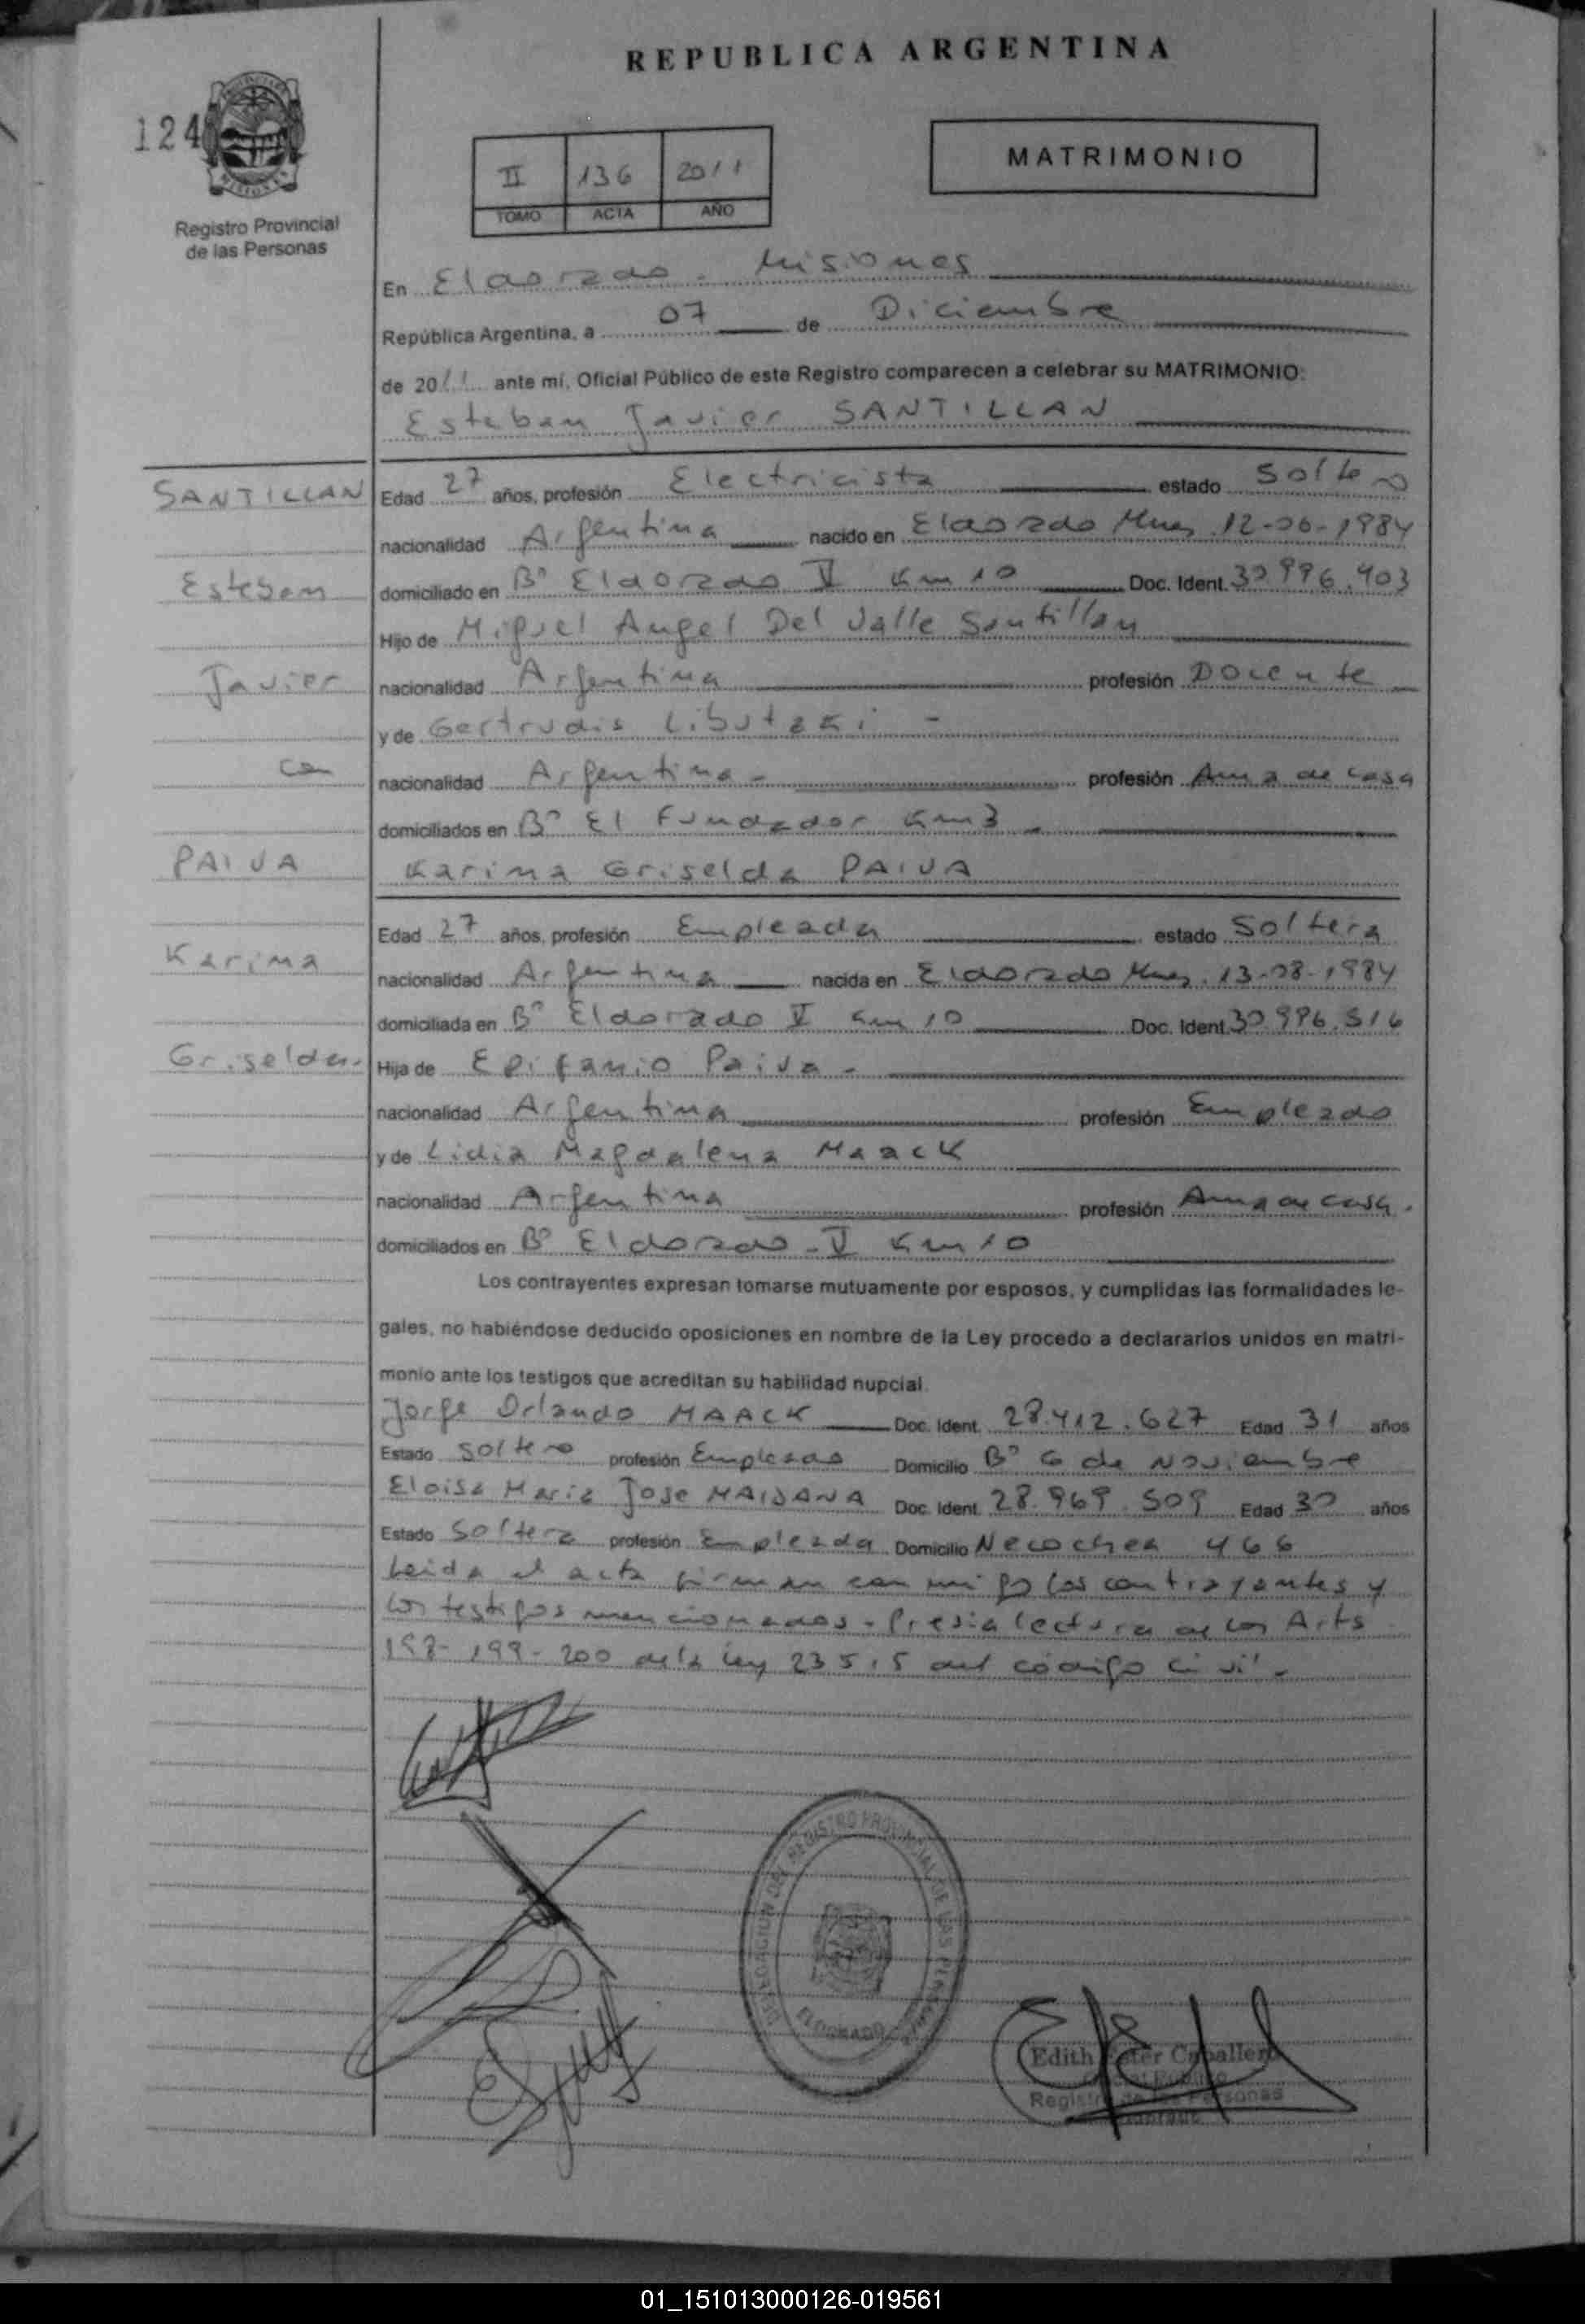 REPUBLICA ARGENTINA
124
MISIONES
Registro Provincial
de las Personas
II 136 2011
TOMO ACTA AÑO
MATRIMONIO
En Eldorado - Misiones
República Argentina, a 07 de Diciembre
de 2011 ante mí, Oficial Público de este Registro comparecen a celebrar su MATRIMONIO:
Esteban Javier SANTILLAN
SANTILLAN
Esteban
Javier
con
PAIVA
Karina
Griselda.
Edad 27 años, profesión Electricista estado Soltero
nacionalidad Argentina nacido en Eldorado Mnes 12-06-1984
domiciliado en B° Eldorado V Km 10 Doc. Ident. 30.996.403
Hijo de Miguel Angel Del Valle Santillan
nacionalidad Argentina profesión Docente
y de Gertrudis -
nacionalidad Argentina - profesión Ama de casa
domiciliados en B° El Fundador Km3 -
Karina Griselda PAIVA
Edad 27 años, profesión Empleada estado Soltera
nacionalidad Argentina nacida en Eldorado Mnes. 13-08-1984
domiciliada en B° Eldorado V Km 10 Doc. Ident. 30.996.516
Hija de Epifanio Paiva -
nacionalidad Argentina profesión Empleado
y de Lidia Magdalena Maack
nacionalidad Argentina profesión Ama de casa.
domiciliados en B° Eldorado - V Km 10
Los contrayentes expresan tomarse mutuamente por esposos, y cumplidas las formalidades le-
gales, no habiéndose deducido oposiciones en nombre de la Ley procedo a declararlos unidos en matri-
monio ante los testigos que acreditan su habilidad nupcial.
Jorge Orlando MAACK Doc. Ident. 28.412.627 Edad 31 años
Estado Soltero profesión Empleado Domicilio B° 6 de Noviembre
Eloisa Maria Jose MAIDANA Doc. Ident. 28.969.509 Edad 30 años
Estado Soltera profesión Empleada Domicilio Necochea 466
Leida el acta firman con migo los contrayentes y
los testigos mencionados - Previa lectura de los Arts
198-199-200 de la Ley 23515 del código civil -
DELEGACION DEL REGISTRO PROVINCIAL DE LAS PERSONAS
ELDORADO
Edith Ester Caballero
Oficial Público
Registro de las Personas
01_151013000126-019561